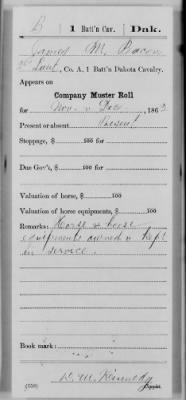 B | 1 Batt'n Cav. | Dak.
James M. Bacon
2d Lieut., Co. A, 1 Batt'n Dakota Cavalry.
Appears on
Company Muster Roll
for Nov. & Dec., 1863
Present or absent Present
Stoppage, $ 100 for
Due Gov't, $ 100 for
Valuation of horse, $ 100
Valuation of horse equipments, $ 100
Remarks: Horse & horse
equipments owned & kept
in service.
Book mark:
W. M. Kennedy
(358) Copyist.